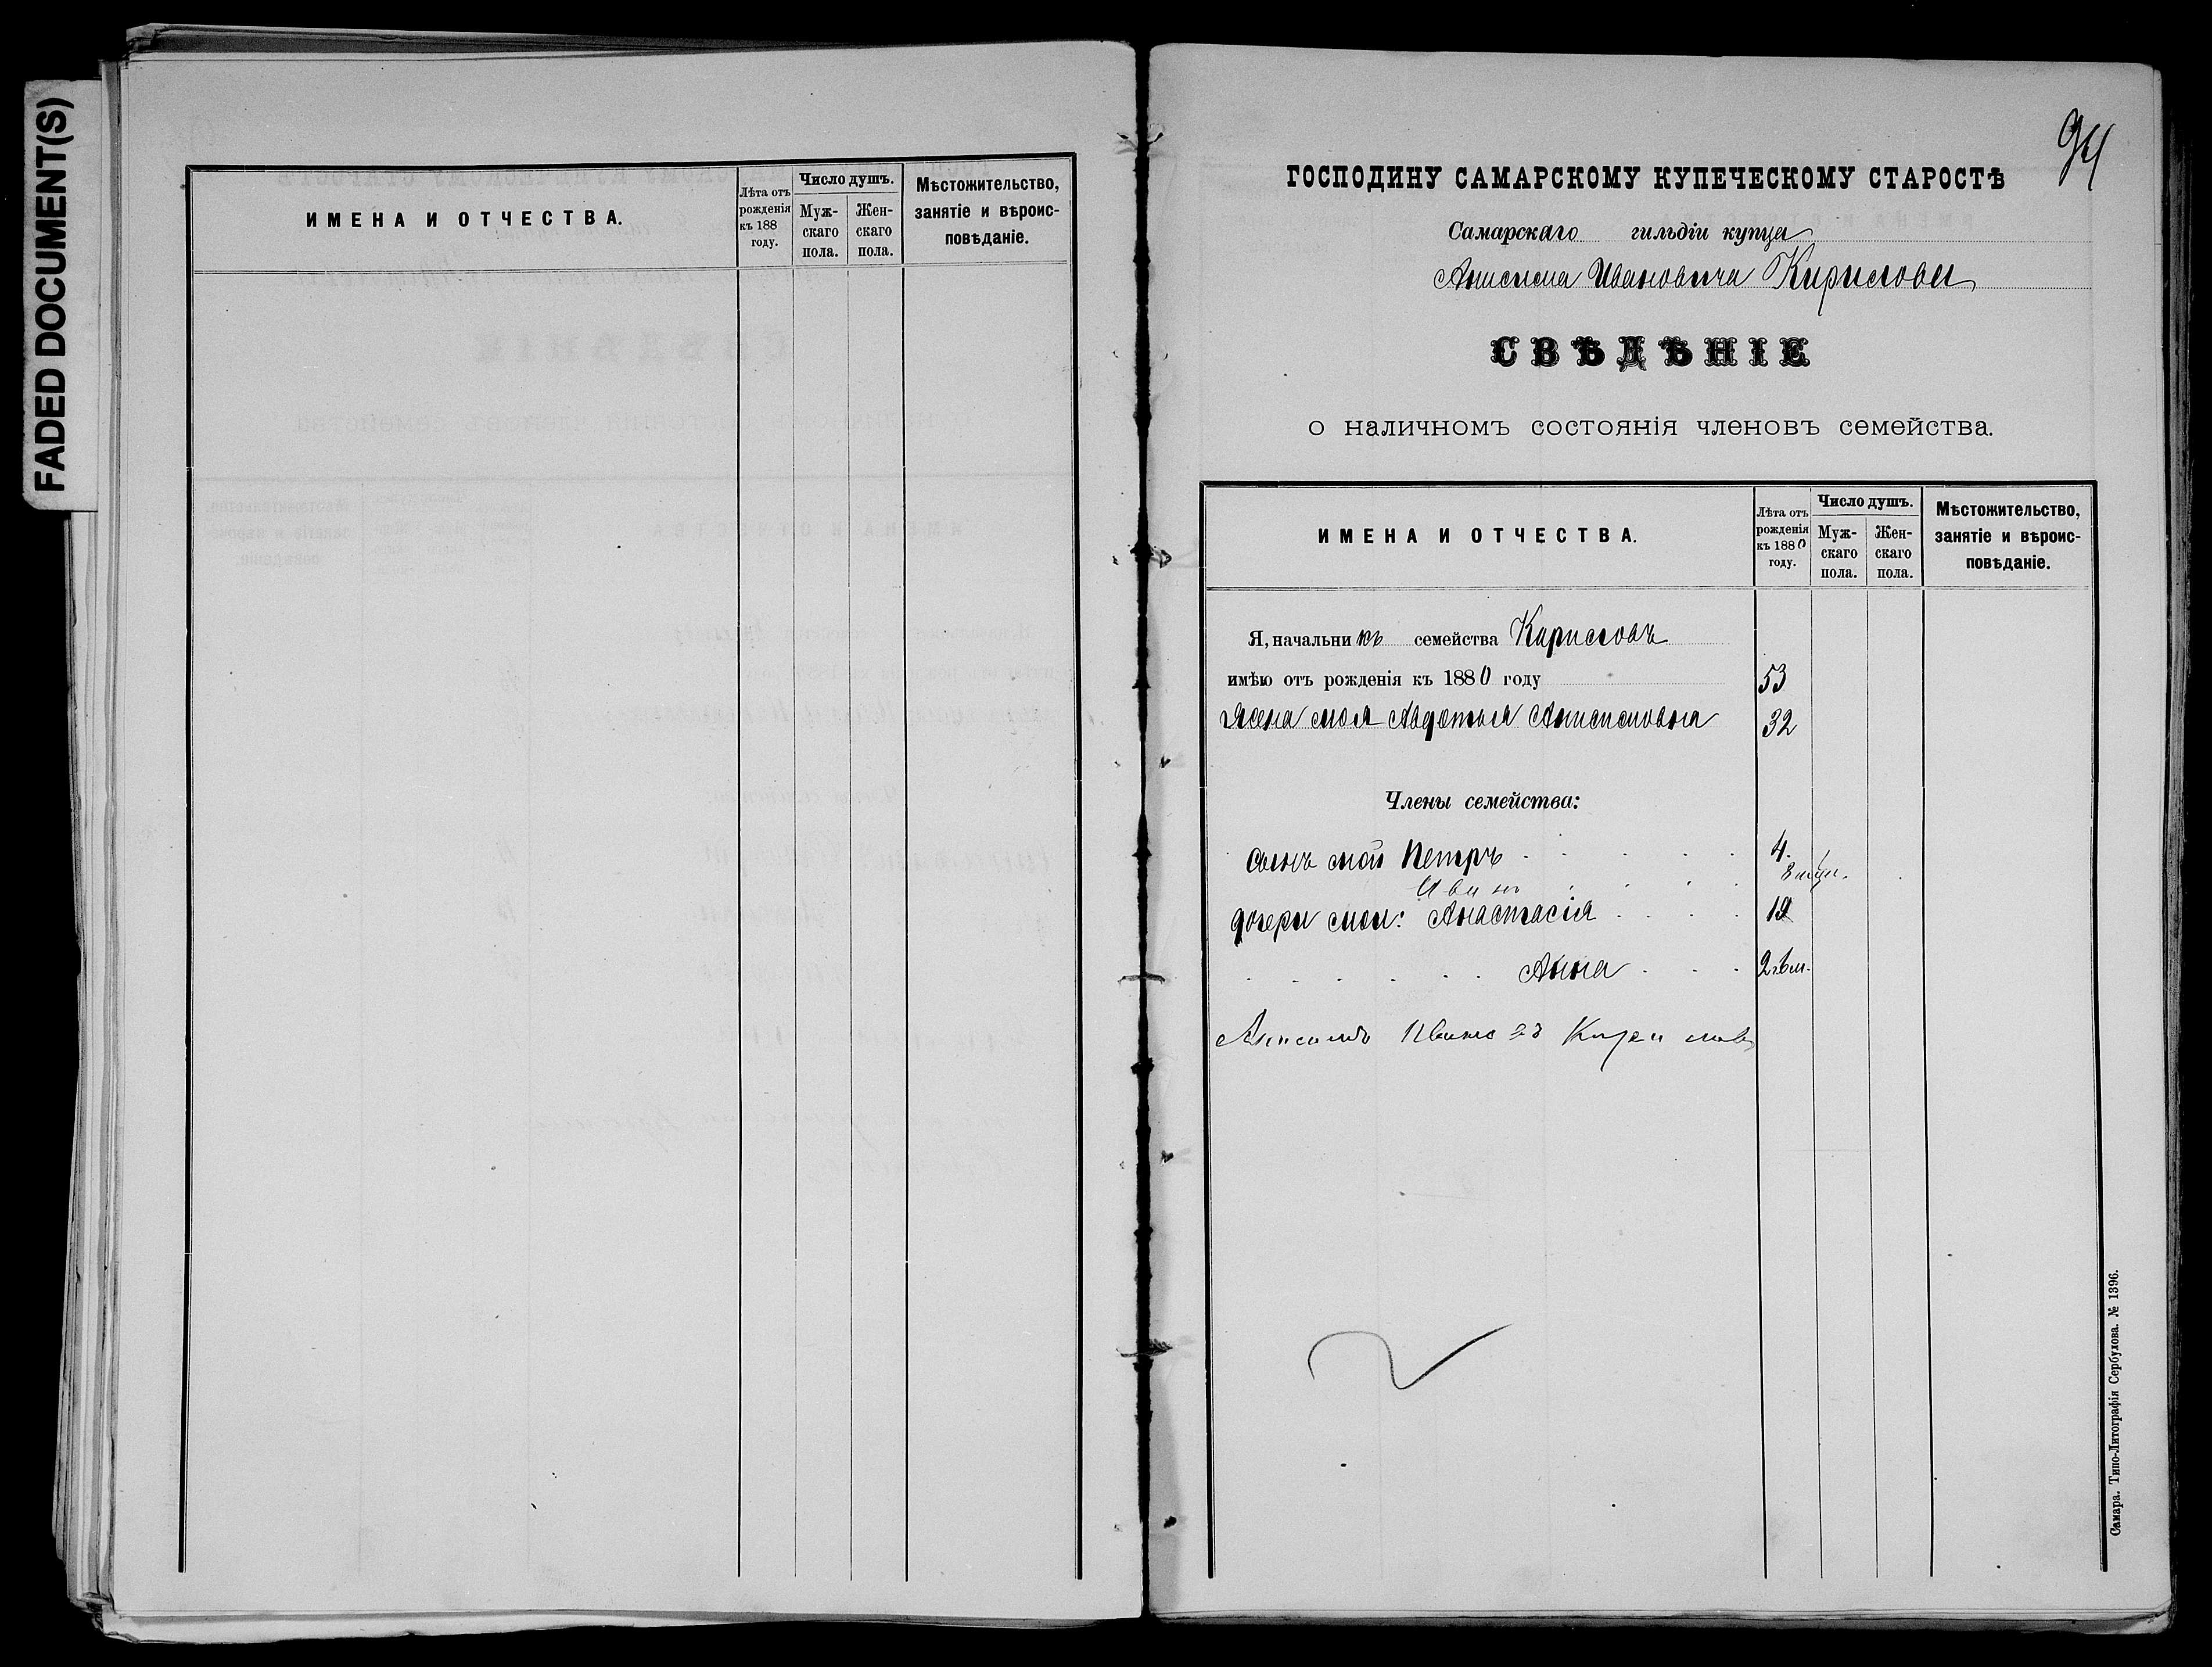 FADED DOCUMENT(S)
ИМЕНА И ОТЧЕСТВА.
Лѣта отъ рожденія къ 188 году.
Число душъ.
Мужскаго пола.
Женскаго пола.
Мѣстожительство, занятіе и вѣроисповѣданіе.
94
ГОСПОДИНУ САМАРСКОМУ КУПЕЧЕСКОМУ СТАРОСТѢ
Самарскаго гильдіи купца
Анисима Ивановича Кирилова
СВѢДѢНІЕ
о наличномъ состоянія членовъ семейства.
ИМЕНА И ОТЧЕСТВА.
Лѣта отъ
рожденія
къ 1880
году.
Число душъ.
Муж-
скаго
пола.
Жен-
скаго
пола.
Мѣстожительство,
занятіе и вѣроис-
повѣданіе.
Я, начальникъ семейства Кириловъ
имѣю отъ рожденія къ 1880 году 53
Жена моя Авдотья Анисимовна 32
Члены семейства:
сынъ мой Петръ 4.
Иванъ
дочери мои: Анастасія
Анна
Анисимъ Ивановъ Кириловъ
Самара. Типо-Литографія Сербулова. № 1396.